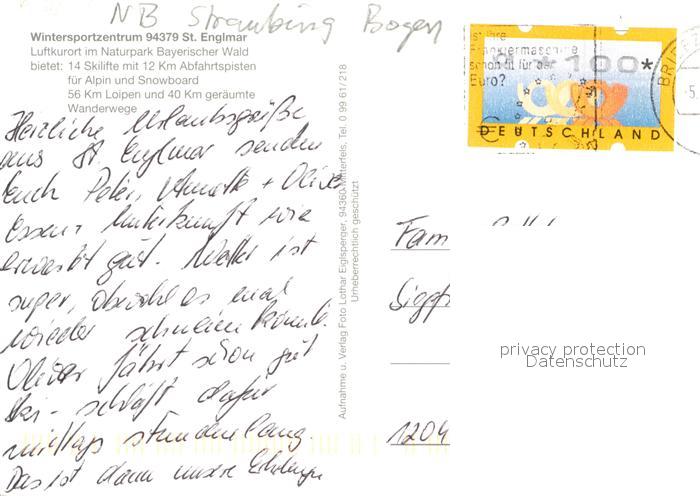 NB Straubing Bogen
Wintersportzentrum 94379 St. Englmar
Luftkurort im Naturpark Bayerischer Wald
bietet: 14 Skilifte mit 12 Km Abfahrtspisten
für Alpin und Snowboard
56 Km Loipen und 40 Km geräumte
Wanderwege
Herzliche Urlaubsgrüße
aus St. Englmar senden
Euch Peter, Annette + Oliver
Essen + Unterkunft wie
erwartet gut. Wetter ist
super, obwohl es mal
wieder schneien könnte.
Oliver fährt schon gut
Ski - schläft dafür
mittags stundenlang
Das ist dann unsere Erholung
Aufnahme u. Verlag Foto Lothar Eiglsperger, 94360 Mitterfels, Tel. 0 99 61/218
Urheberrechtlich geschützt
Ist Ihre
Frankiermaschine
schon fit für den
Euro?
*100*
DEUTSCHLAND
BRIEF
Fam
1204
privacy protection
Datenschutz